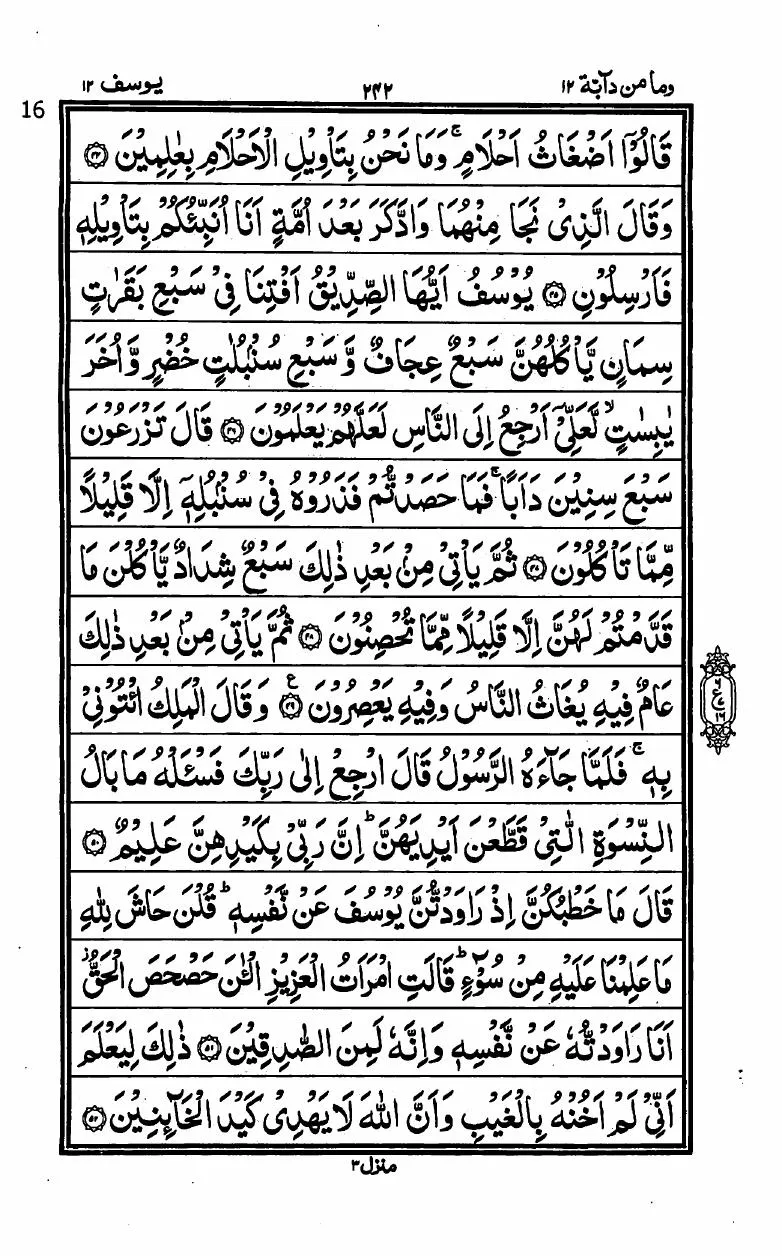 وما من دآبّة ١٢
٢٤٢
يوسف ١٢
16
قَالُوْٓا اَضْغَاثُ اَحْلَامٍ ۚ وَمَا نَحْنُ بِتَاْوِيْلِ الْاَحْلَامِ بِعٰلِمِيْنَ ﴿۴۴﴾
وَقَالَ الَّذِيْ نَجَا مِنْهُمَا وَادَّكَرَ بَعْدَ اُمَّةٍ اَنَا اُنَبِّئُكُمْ بِتَاْوِيْلِهٖ
فَاَرْسِلُوْنِ ﴿۴۵﴾ يُوْسُفُ اَيُّهَا الصِّدِّيْقُ اَفْتِنَا فِيْ سَبْعِ بَقَرٰتٍ
سِمَانٍ يَّاْكُلُهُنَّ سَبْعٌ عِجَافٌ وَّسَبْعِ سُنْۢبُلٰتٍ خُضْرٍ وَّاُخَرَ
يٰبِسٰتٍ ۙ لَّعَلِّيْٓ اَرْجِعُ اِلَى النَّاسِ لَعَلَّهُمْ يَعْلَمُوْنَ ﴿۴۶﴾ قَالَ تَزْرَعُوْنَ
سَبْعَ سِنِيْنَ دَاَبًا ۚ فَمَا حَصَدْتُّمْ فَذَرُوْهُ فِيْ سُنْۢبُلِهٖٓ اِلَّا قَلِيْلًا
مِّمَّا تَاْكُلُوْنَ ﴿۴۷﴾ ثُمَّ يَاْتِيْ مِنْۢ بَعْدِ ذٰلِكَ سَبْعٌ شِدَادٌ يَّاْكُلْنَ مَا
قَدَّمْتُمْ لَهُنَّ اِلَّا قَلِيْلًا مِّمَّا تُحْصِنُوْنَ ﴿۴۸﴾ ثُمَّ يَاْتِيْ مِنْۢ بَعْدِ ذٰلِكَ
عَامٌ فِيْهِ يُغَاثُ النَّاسُ وَفِيْهِ يَعْصِرُوْنَ ﴿۴۹﴾ ع وَقَالَ الْمَلِكُ ائْتُوْنِيْ
بِهٖ ۚ فَلَمَّا جَآءَهُ الرَّسُوْلُ قَالَ ارْجِعْ اِلٰى رَبِّكَ فَسْـَٔلْهُ مَا بَالُ
النِّسْوَةِ الّٰتِيْ قَطَّعْنَ اَيْدِيَهُنَّ ؕ اِنَّ رَبِّيْ بِكَيْدِهِنَّ عَلِيْمٌ ﴿۵۰﴾
قَالَ مَا خَطْبُكُنَّ اِذْ رَاوَدْتُّنَّ يُوْسُفَ عَنْ نَّفْسِهٖ ؕ قُلْنَ حَاشَ لِلّٰهِ
مَا عَلِمْنَا عَلَيْهِ مِنْ سُوْٓءٍ ؕ قَالَتِ امْرَاَتُ الْعَزِيْزِ الْـٰٔنَ حَصْحَصَ الْحَقُّ ۫
اَنَا رَاوَدْتُّهٗ عَنْ نَّفْسِهٖ وَاِنَّهٗ لَمِنَ الصّٰدِقِيْنَ ﴿۵۱﴾ ذٰلِكَ لِيَعْلَمَ
اَنِّيْ لَمْ اَخُنْهُ بِالْغَيْبِ وَاَنَّ اللّٰهَ لَا يَهْدِيْ كَيْدَ الْخَآئِنِيْنَ ﴿۵۲﴾
منزل ٣